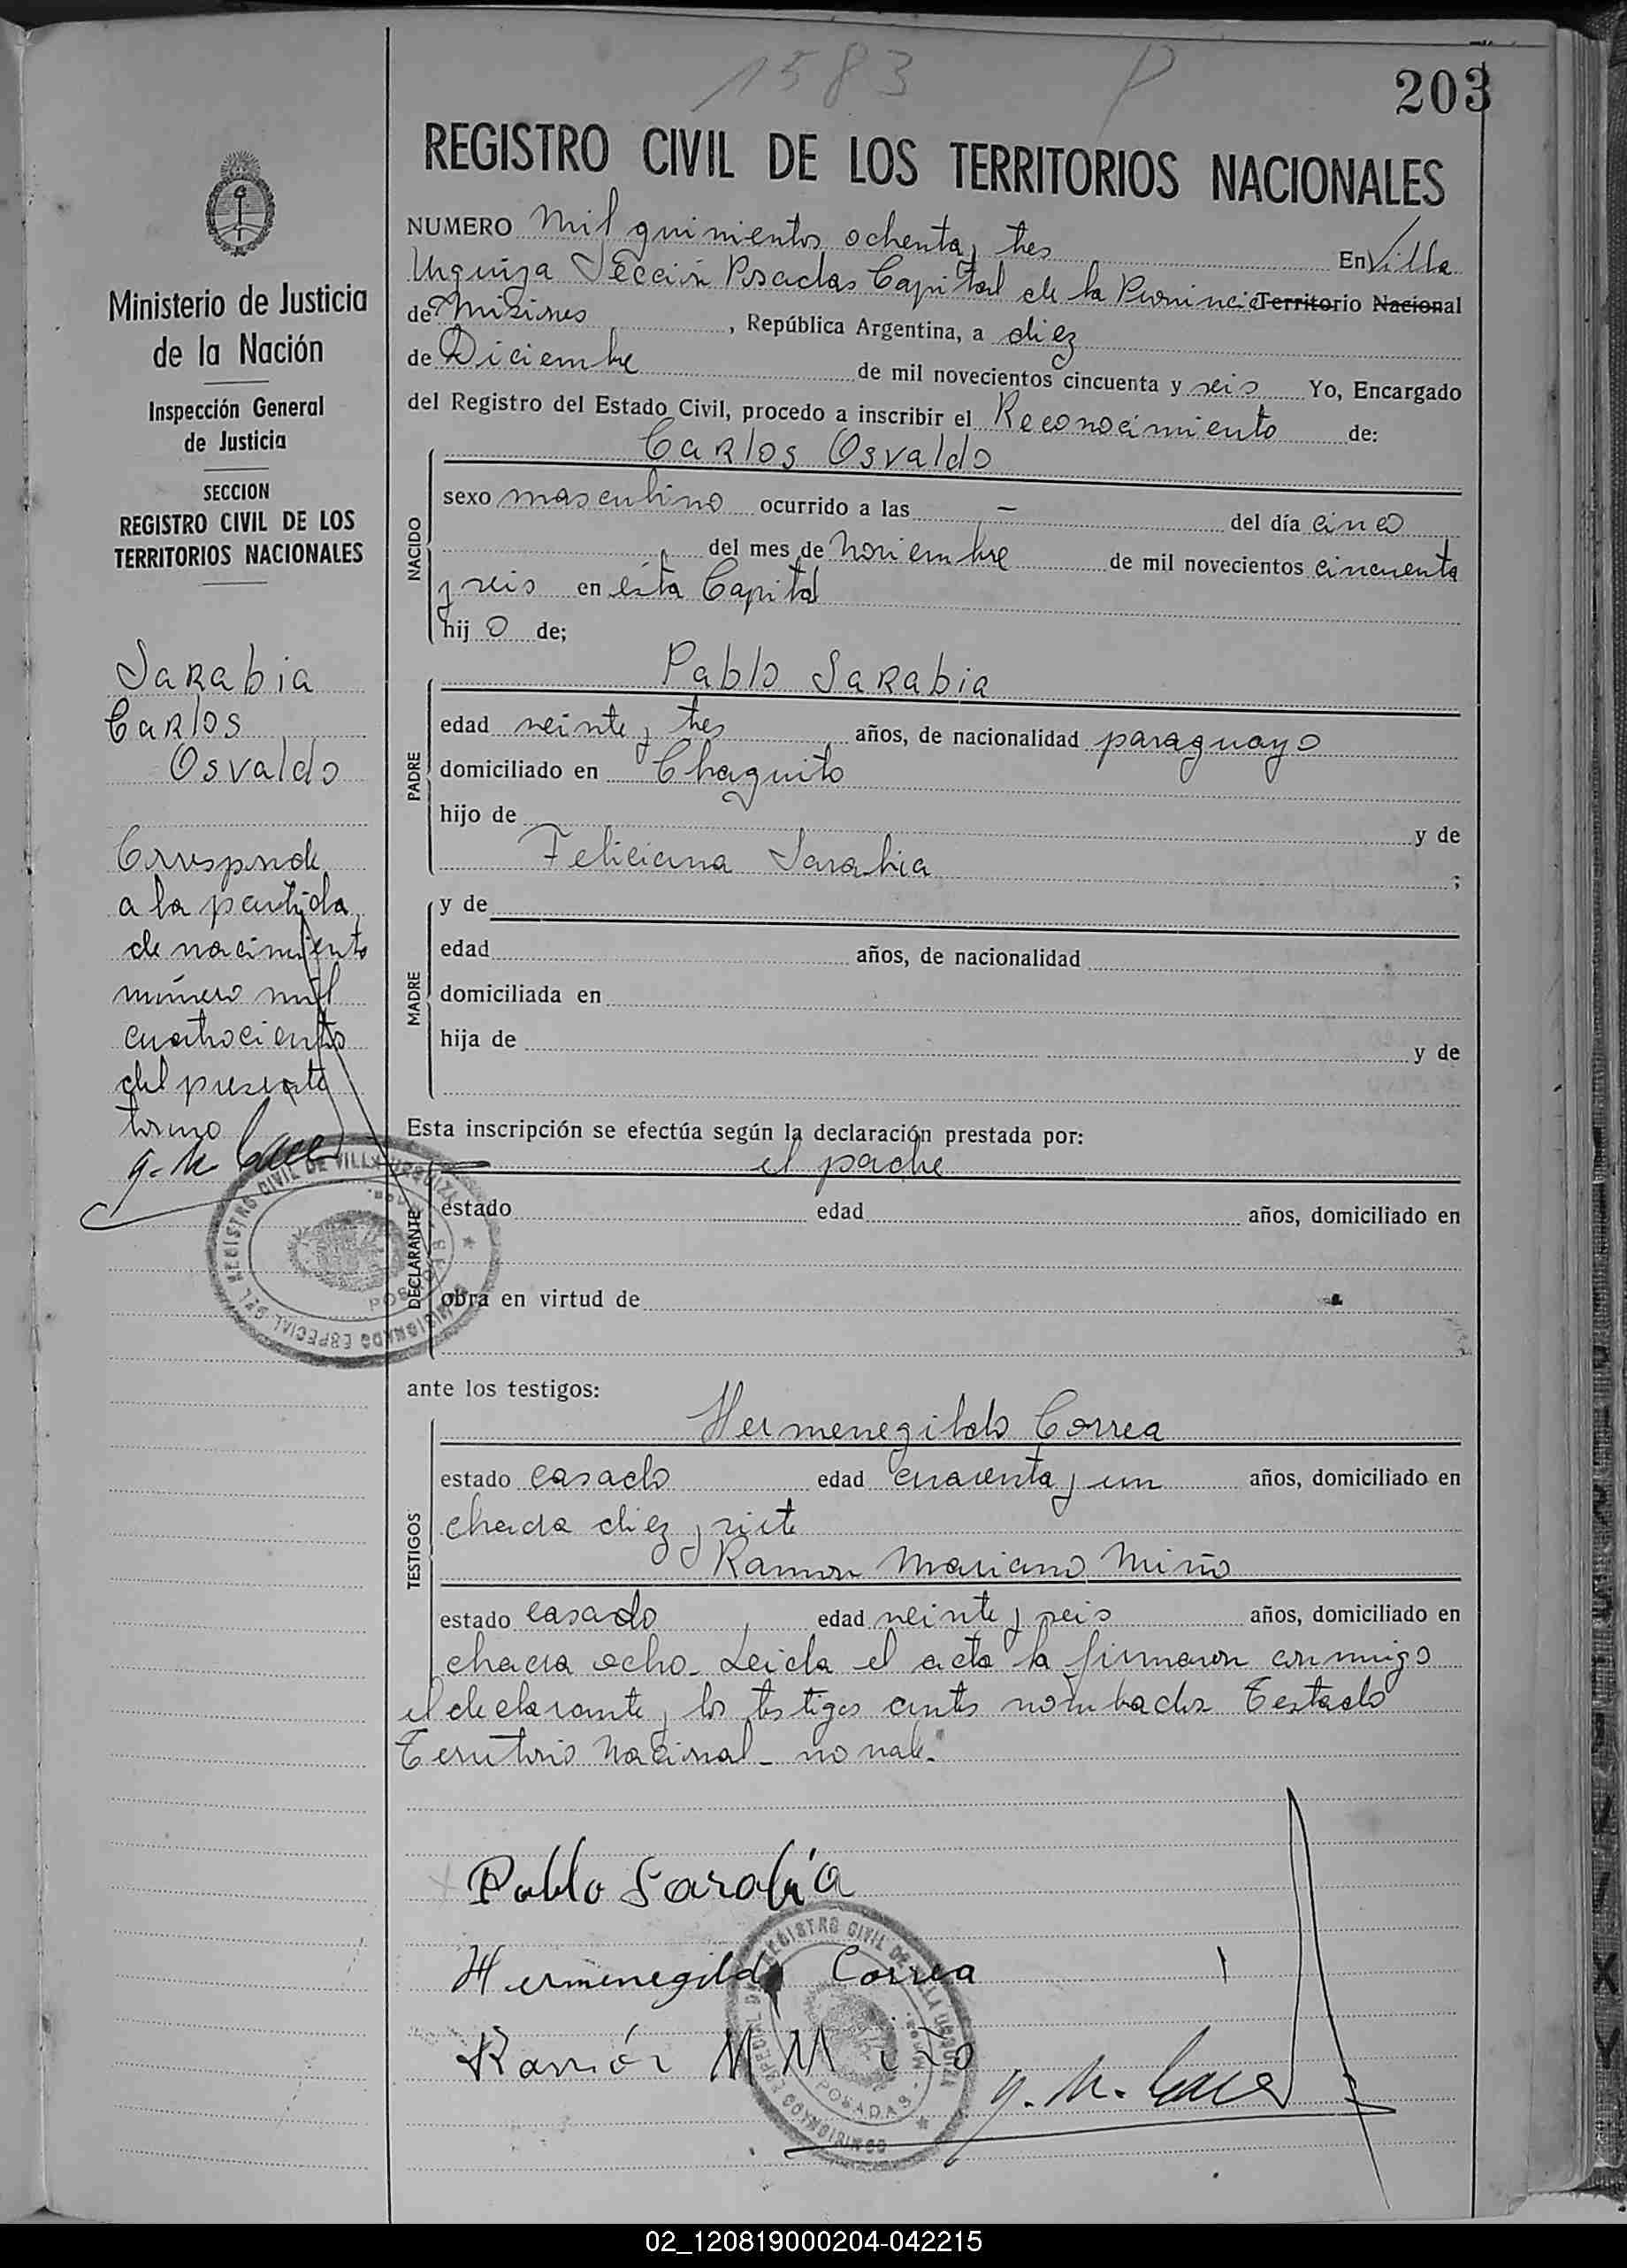 1583 P
203
REGISTRO CIVIL DE LOS TERRITORIOS NACIONALES
Ministerio de Justicia
de la Nación
Inspección General
de Justicia
SECCION
REGISTRO CIVIL DE LOS
TERRITORIOS NACIONALES
Sarabia
Carlos
Osvaldo
Corresponde
a la partida
de nacimiento
número mil
cuatrocientos
del presente
tomo
NUMERO Mil quinientos ochenta y tres En Villa
Urquiza Sección Posadas Capital de la Provincia Territorio Nacional
de Misiones, República Argentina, a diez
de Diciembre de mil novecientos cincuenta y seis Yo, Encargado
del Registro del Estado Civil, procedo a inscribir el Reconocimiento de:
Carlos Osvaldo
NACIDO
sexo masculino ocurrido a las — del día cinco
del mes de Noviembre de mil novecientos cincuenta
y seis en esta Capital
hij o de;
Pablo Sarabia
PADRE
edad veinte y tres años, de nacionalidad paraguayo
domiciliado en Chaquito
hijo de y de
Feliciana Sarabia ;
MADRE
y de
edad años, de nacionalidad
domiciliada en
hija de y de
Esta inscripción se efectúa según la declaración prestada por:
el padre
DECLARANTE
estado edad años, domiciliado en
obra en virtud de
COMISIONADO ESPECIAL DEL REGISTRO CIVIL DE VILLA URQUIZA
POSADAS
ante los testigos:
Hermenegildo Correa
TESTIGOS
estado casado edad cuarenta y un años, domiciliado en
chacra diez y siete
Ramon Mariano Miño
estado casado edad veinte y seis años, domiciliado en
chacra ocho. Leida el acta la firmaron conmigo
el declarante y los testigos antes nombrados Testado
Territorio Nacional - no vale.
Pablo Sarabia
Hermenegildo Correa
Ramón M Miño
COMISIONADO ESPECIAL DEL REGISTRO CIVIL DE VILLA URQUIZA
POSADAS
02_120819000204-042215